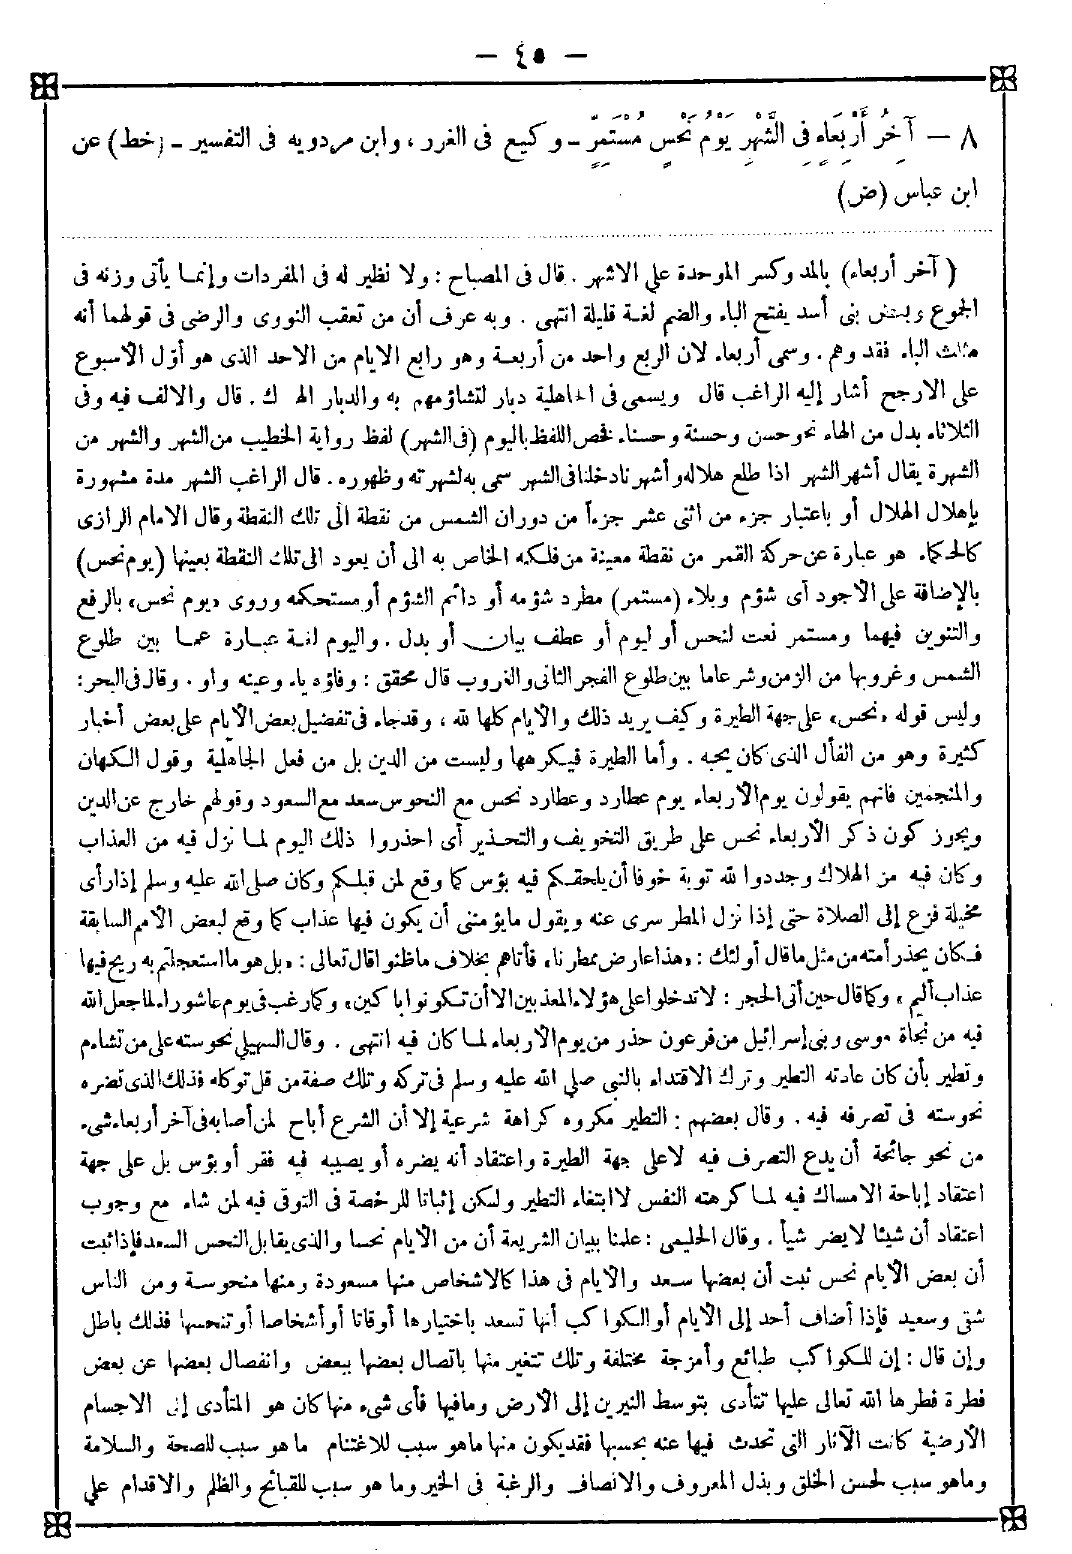 — ٤٥ —
٨ — آخِرُ أَرْبِعَاءٍ فِى الشَّهْرِ يَوْمُ نَحْسٍ مُسْتَمِرٍّ ـ وكيع فى الغرر ، وابن مردويه فى التفسير ـ (خط) عن
ابن عباس (ض)
( آخر أربعاء) بالمد وكسر الموحدة على الاشهر . قال فى المصباح : ولا نظير له فى المفردات وإنما يأتى وزنه فى
الجموع وبعض بنى أسد يفتح الباء والضم لغة قليلة انتهى . وبه عرف أن من تعقب النووى والرضى فى قولهما أنه
مثلث الباء فقد وهم . وسمى أربعاء لان الربع واحد من أربعة وهو رابع الايام من الاحد الذى هو أوّل الأسبوع
على الارجح أشار إليه الراغب قال ويسمى فى الجاهلية دبار لتشاؤمهم به والدبار الهلاك . قال والالف فيه وفى
الثلاثاء بدل من الهاء نحو حسن وحسنة وحسناء فخص اللفظ باليوم (فى الشهر) لفظ رواية الخطيب من الشهر والشهر من
الشهرة يقال أشهر الشهر اذا طلع هلاله وأشهرنا دخلنا فى الشهر سمى به لشهرته وظهوره . قال الراغب الشهر مدة مشهورة
بإهلال الهلال أو باعتبار جزء من اثنى عشر جزءاً من دوران الشمس من نقطة الى تلك النقطة وقال الامام الرازى
كالحكماء هو عبارة عن حركة القمر من نقطة معينة من فلكه الخاص به الى أن يعود الى تلك النقطة بعينها (يوم نحس)
بالإضافة على الأجود أى شؤم وبلاء (مستمر) مطرد شؤمه أو دائم الشؤم أو مستحكمه وروى «يوم نحس» بالرفع
والتنوين فيهما ومستمر نعت لنحس أو ليوم أو عطف بيان أو بدل . واليوم لغة عبارة عما بين طلوع
الشمس وغروبها من الزمن وشرعا ما بين طلوع الفجر الثانى والغروب قال محقق : وفاؤه ياء وعينه واو . وقال فى البحر :
وليس قوله «نحس» على جهة الطيرة وكيف يريد ذلك والأيام كلها لله ، وقد جاء فى تفضيل بعض الأيام على بعض أخبار
كثيرة وهو من الفأل الذى كان يحبه . وأما الطيرة فيكرهها وليست من الدين بل من فعل الجاهلية وقول الكهان
والمنجمين فانهم يقولون يوم الأربعاء يوم عطارد وعطارد نحس مع النحوس سعد مع السعود وقولهم خارج عن الدين
ويجوز كون ذكر الأربعاء نحس على طريق التخويف والتحذير أى احذروا ذلك اليوم لما نزل فيه من العذاب
وكان فيه من الهلاك وجددوا لله توبة خوفا أن يلحقكم فيه بؤس كما وقع لمن قبلكم وكان صلى الله عليه وسلم إذا رأى
مخيلة فزع إلى الصلاة حتى إذا نزل المطر سرى عنه ويقول ما يؤمننى أن يكون فيها عذاب كما وقع لبعض الأمم السابقة
فكان يحذر أمته من مثل ما قال أولئك : «هذا عارض ممطرنا» فأتاهم بخلاف ما ظنوا قال تعالى : «بل هو ما استعجلتم به ريح فيها
عذاب أليم» وكما قال حين أتى الحجر : لا تدخلوا على هؤلاء المعذبين الا أن تكونوا باكين» وكما رغب فى يوم عاشوراء لما جعل الله
فيه من نجاة موسى وبنى إسرائيل من فرعون حذر من يوم الأربعاء لما كان فيه انتهى . وقال السهيلى نحوسته على من تشاءم
وتطير بأن كان عادته التطير وترك الاقتداء بالنبى صلى الله عليه وسلم فى تركه وتلك صفة من قل توكله فذلك الذى تضره
نحوسته فى تصرفه فيه . وقال بعضهم : التطير مكروه كراهة شرعية إلا أن الشرع أباح لمن أصابه فى آخر أربعاء شىء
من نحو جائحة أن يدع التصرف فيه لا على جهة الطيرة واعتقاد أنه يضره أو يصيبه فيه فقر أو بؤس بل على جهة
اعتقاد إباحة الامساك فيه لما كرهته النفس لا ابتغاء التطير ولكن إثباتا للرخصة فى التوقى فيه لمن شاء مع وجوب
اعتقاد أن شيئا لا يضر شيأ . وقال الحليمى : علمنا ببيان الشريعة أن من الأيام نحسا والذى يقابل النحس السعد فإذا ثبت
أن بعض الأيام نحس ثبت أن بعضها سعد والأيام فى هذا كالاشخاص منها مسعودة ومنها منحوسة ومن الناس
شقى وسعيد فإذا أضاف أحد إلى الأيام أو الكواكب أنها تسعد باختيارها أوقاتا أو أشخاصا أو تنحسها فذلك باطل
وإن قال : إن للكواكب طبائع وأمزجة مختلفة وتلك تتغير منها باتصال بعضها ببعض وانفصال بعضها عن بعض
فطرة فطرها الله تعالى عليها تتأدى بتوسط النيرين إلى الأرض وما فيها فأى شىء منها كان هو المتأدى إلى الاجسام
الأرضية كانت الآثار التى تحدث فيها عنه بحسبها فقد يكون منها ما هو سبب للاغتنام ما هو سبب للصحة والسلامة
وما هو سبب لحسن الخلق وبذل المعروف والانصاف والرغبة فى الخير وما هو سبب للقبائح والظلم والاقدام على